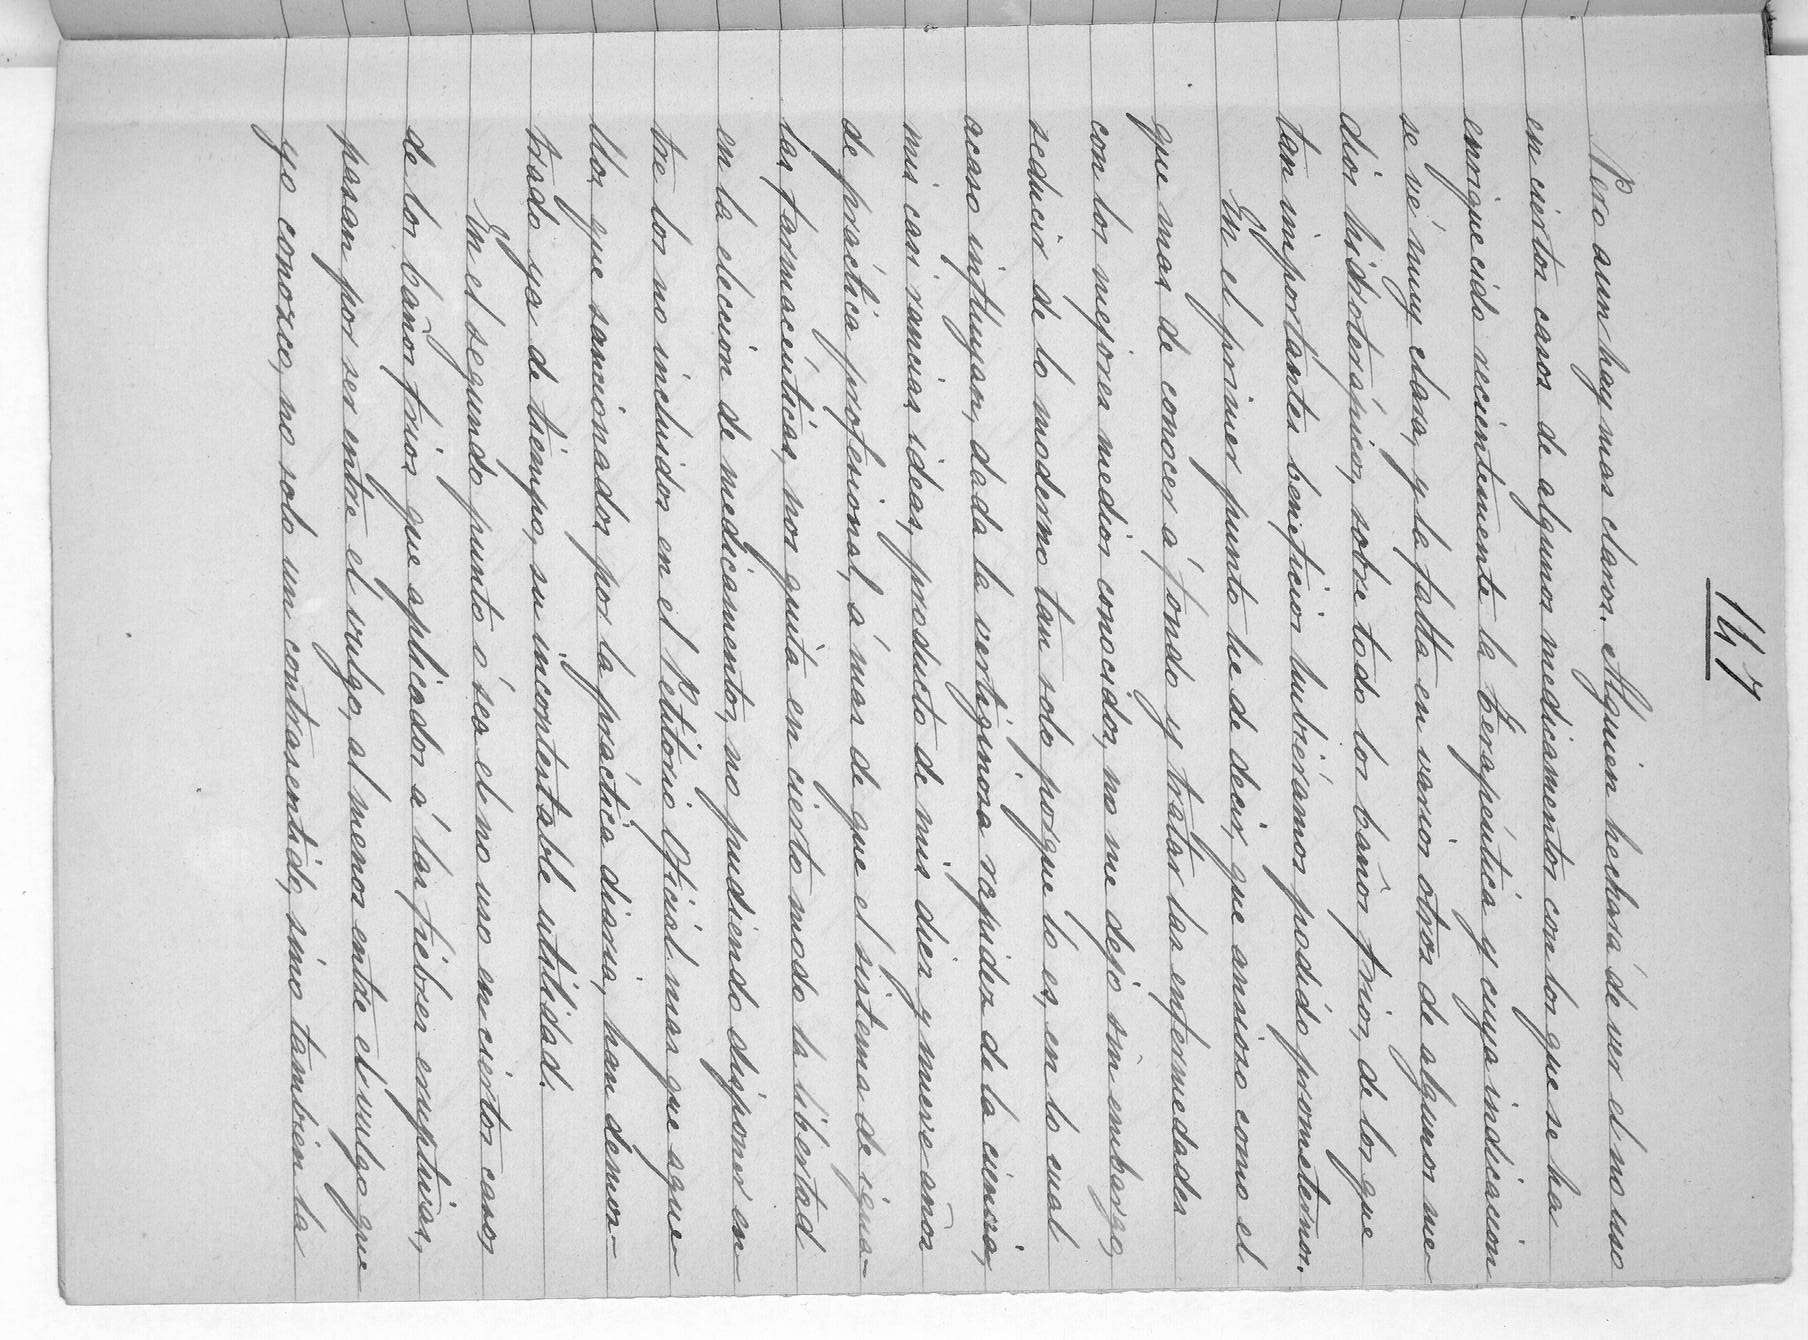 147
Pero aun hay mas claros. Alguien hechará de ver el no uso
en ciertos casos de algunos medicamentos con los que se ha
enriquecido recientemente la terapéutica y cuya indicacion
se vé muy clara, y la falta en varios otros de algunos me-
dios hidroterápicos, sobre todo los baños frios, de los que
tan importantes beneficios hubiéramos podido prometernos.
En el primer punto he de decir, que ansioso como el
que mas de conocer á fondo y tratar las enfermedades
con los mejores medios conocidos, no me dejo sin embargo,
seducir de lo moderno tan solo porque lo es, en lo cual
acaso influyan, dada la vertiginosa rapidez de la ciencia,
mis casi rancias ideas, producto de mis diez y nueve años
de práctica profesional, á mas de que el sistema de igua-
las farmacéuticas, nos quita en cierto modo la libertad
en la eleccion de medicamentos, no pudiendo disponer en-
tre los no incluidos en el Petitorio Oficial mas que aque-
llos que sancionados por la práctica diaria, han demos-
trado ya de tiempo, su incontestable utilidad.
En el segundo punto o sea el no uso en ciertos casos
de los baños frios que aplicados á las fiebres eruptivas,
pasan por ser entre el vulgo, al menos entre el vulgo que
yo conozco, no solo un contrasentido, sino tambien la